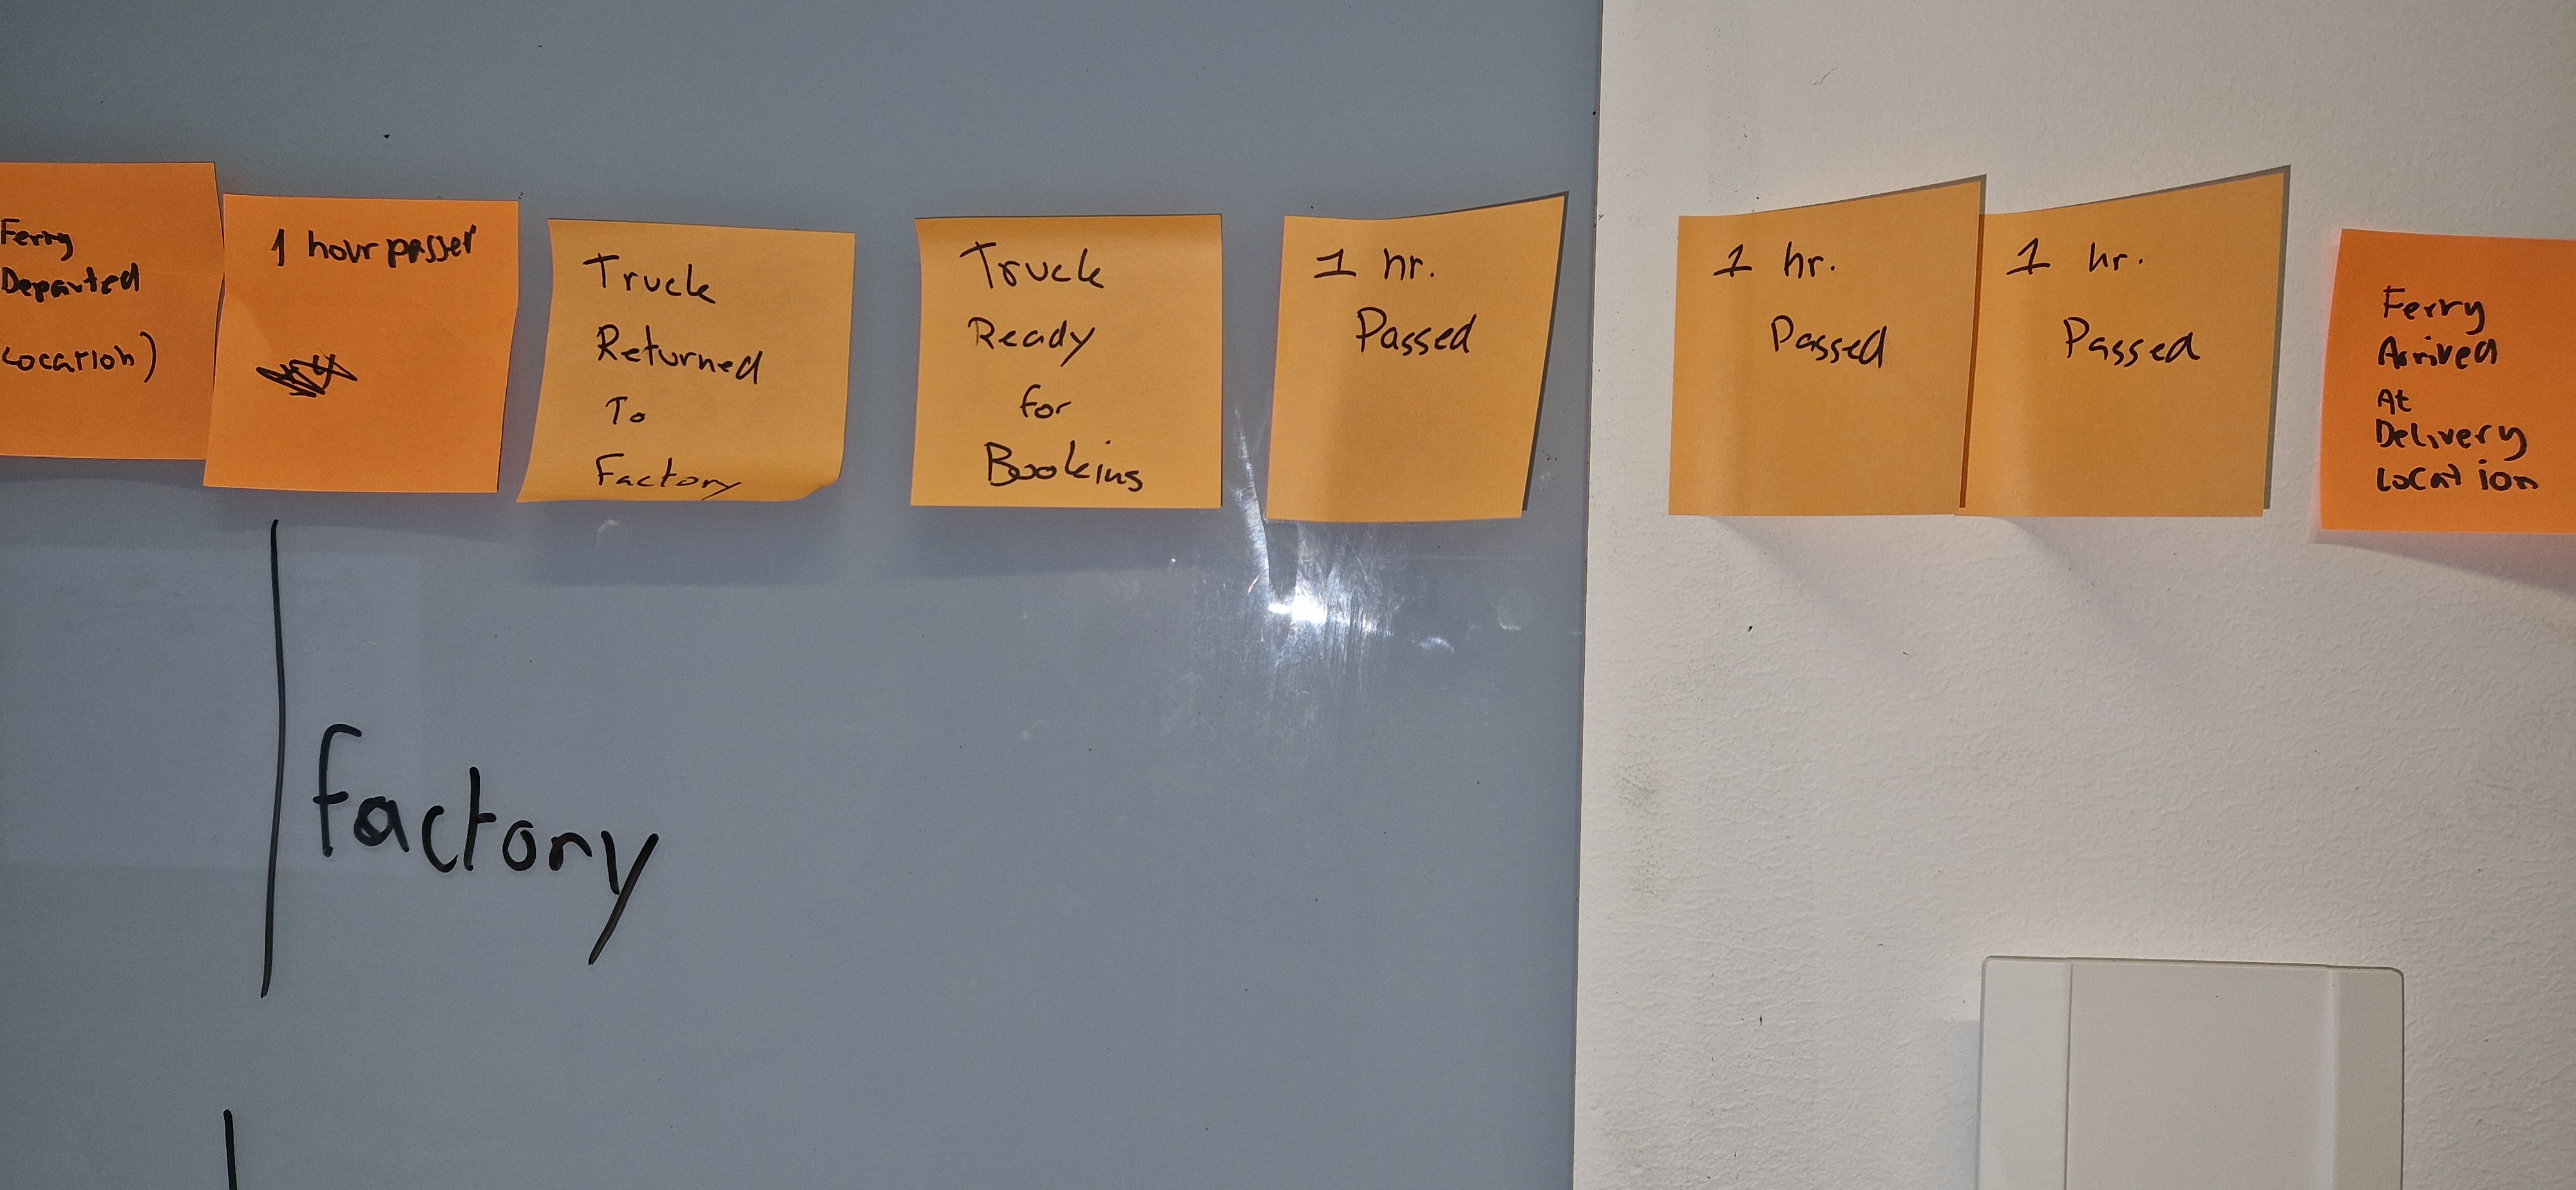 Ferry
Departed
Location)
1 hour passed
Truck
Returned
To
Factory
Truck
Ready
for
Booking
1 hr.
Passed
1 hr.
Passed
1 hr.
Passed
Ferry
Arrived
At
Delivery
Location
Factory